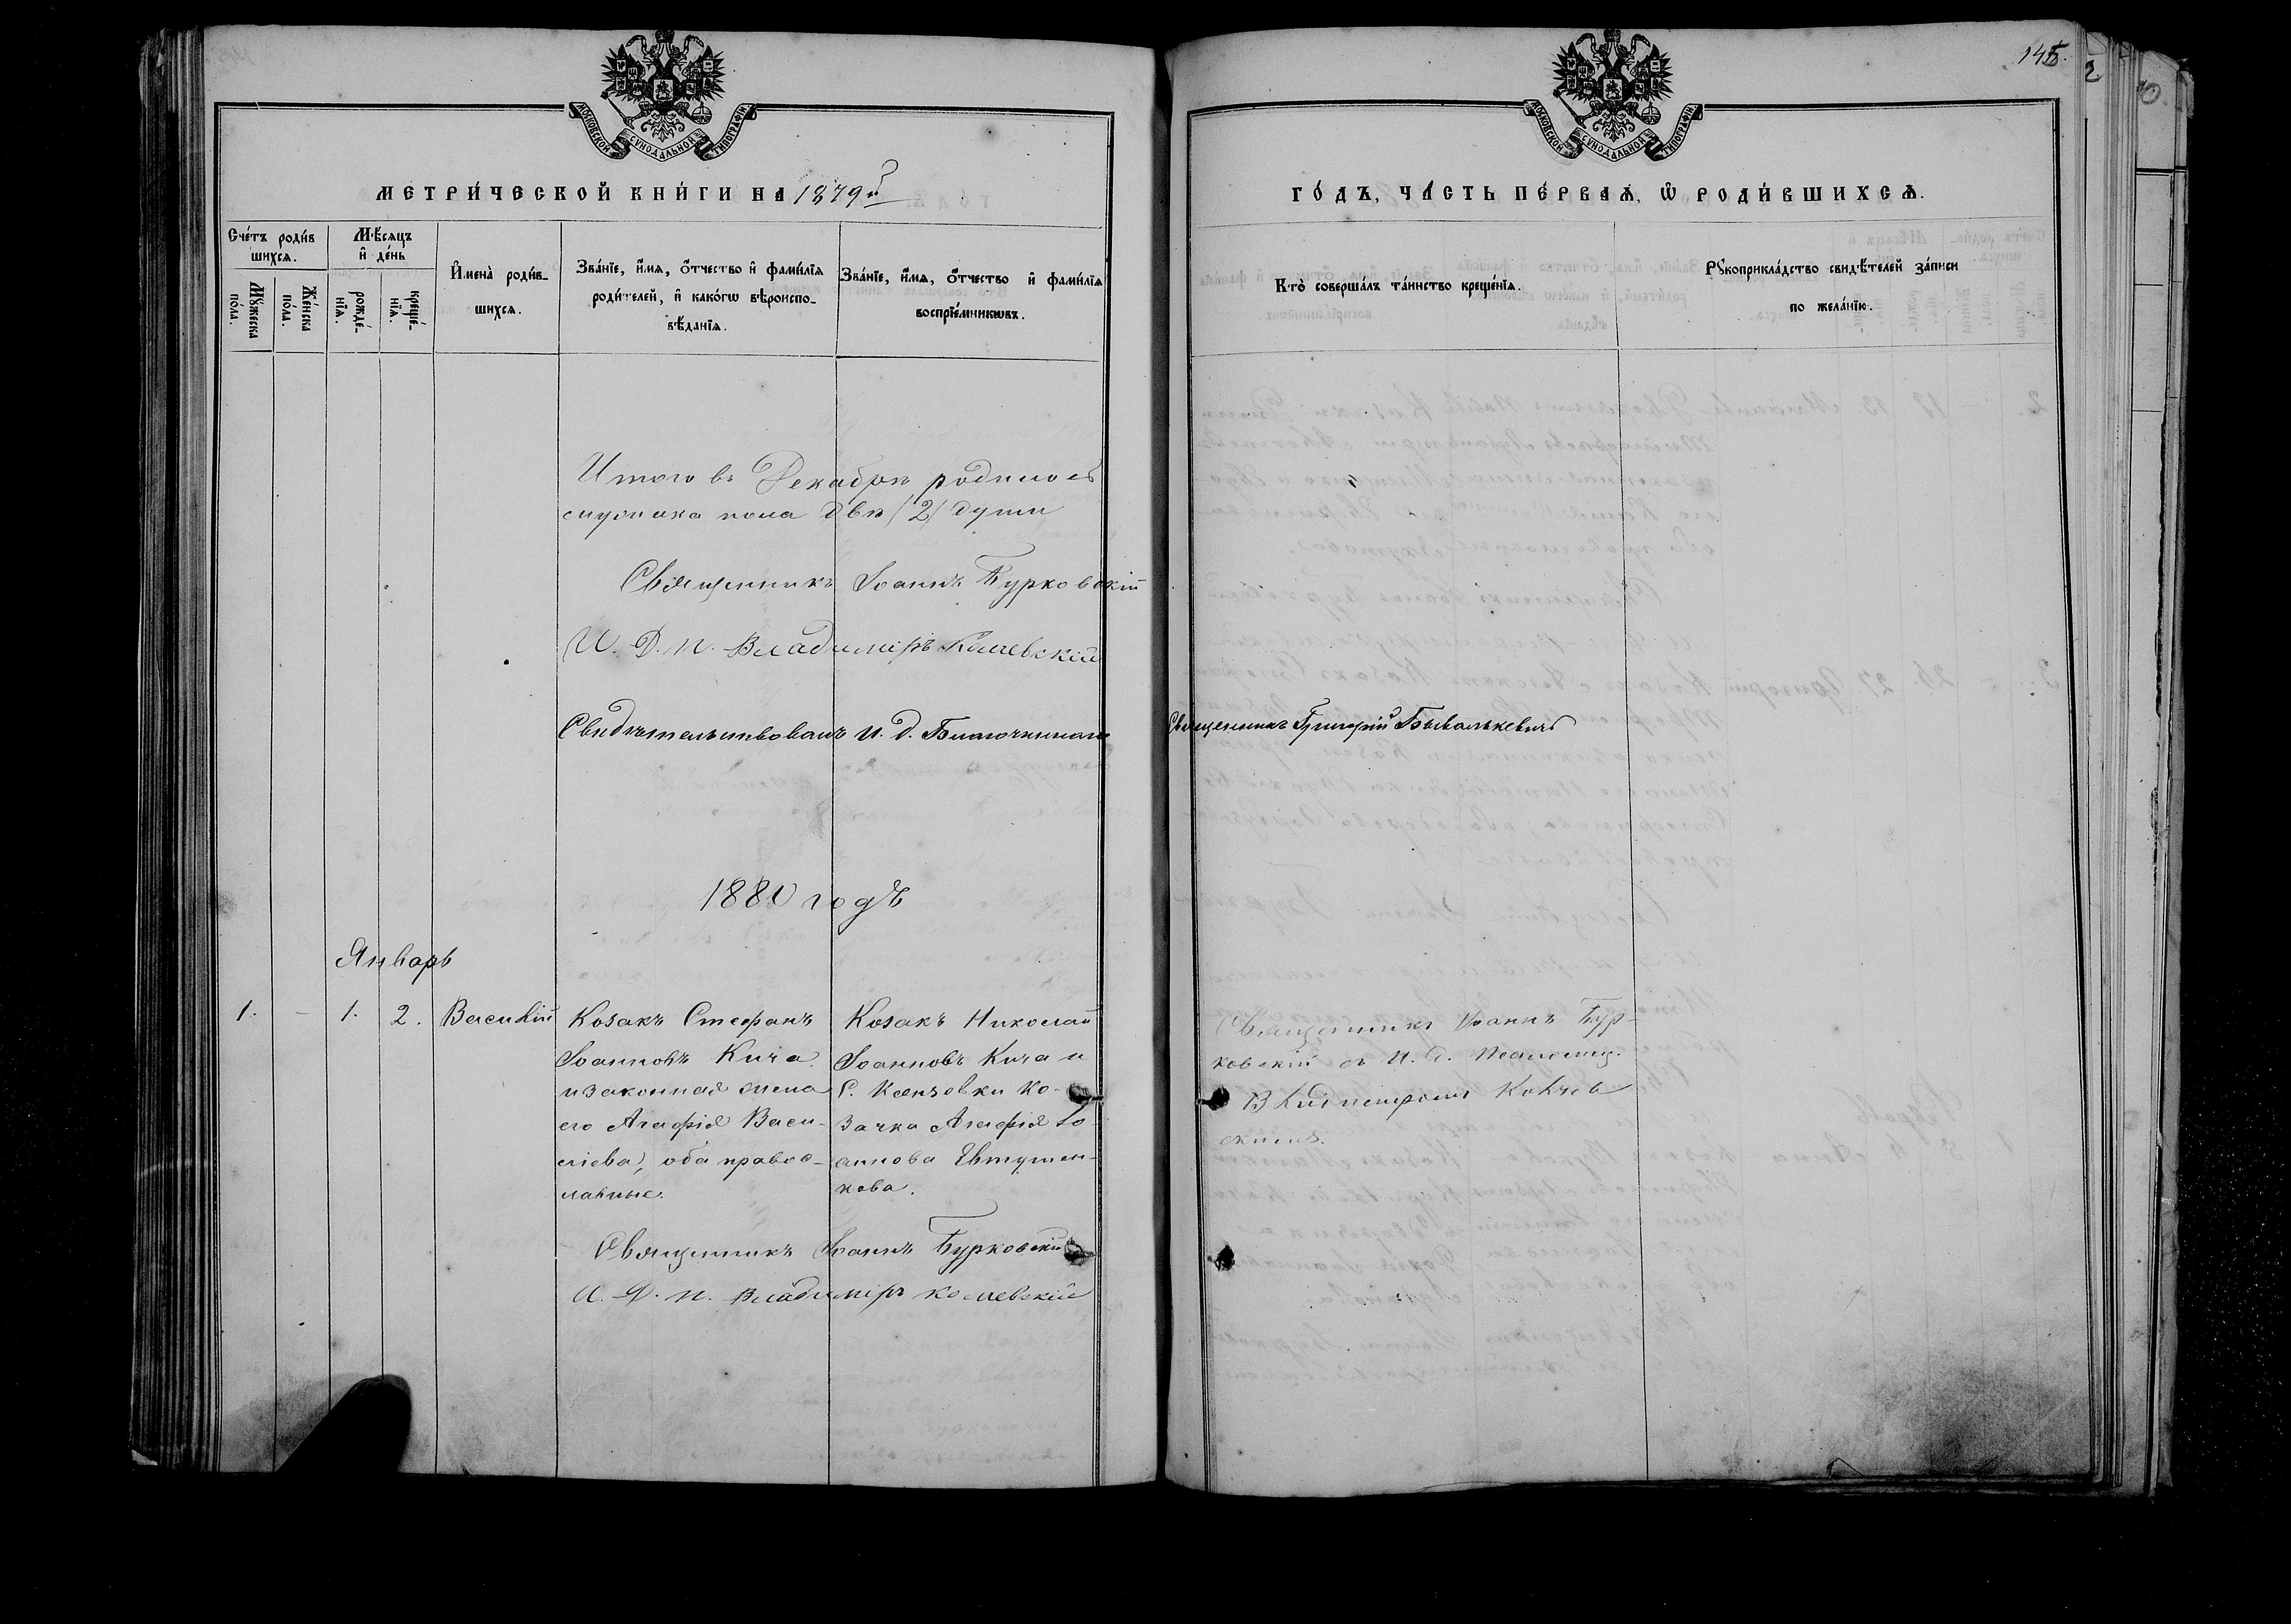 145.
МОСКОВСКОЙ СѴНОДАЛЬНОЙ ТИПОГРАФІИ
МЕТРИ́ЧЕСКОЙ КНИ́ГИ НА 1879й
Сче́тъ роди́в
шихсѧ.
Мꙋ́жеска
по́ла.
Же́нска
по́ла.
Мѣ́сѧцъ
и҆ де́нь
рожде́-
нїѧ.
креще́-
нїѧ.
И҆мена̀ роди́в-
шихсѧ.
Зва́нїе, и҆́мѧ, ѻ҆́тчество и҆ фами́лїѧ
роди́телей, и҆ како́гѡ вѣроиспо-
вѣ́данїѧ.
Зва́нїе, и҆́мѧ, ѻ҆́тчество и҆ фами́лїѧ
воспрїе́мникѡвъ.
Итого въ Декабрѣ родилось
мужска пола двѣ /2/ души
Священникъ Іоаннъ Бурковскій
И. Д. п. Владиміръ
Свидѣтельствовалъ И. д. Благочиннаго
1880 годъ
Январь
1. – 1. 2. Василій
Козакъ Стефанъ
Іоанновъ Кича
и законная жена
его Агафія Васи-
ліева, оба правос-
лавные.
Козакъ Николай
Іоанновъ Кича и
С. Ко-
зачка Агафія Іо-
аннова Евтушен-
кова.
Священникъ Іоаннъ Бурковскій
И. Д. п. Владиміръ
МОСКОВСКОЙ СѴНОДАЛЬНОЙ ТИПОГРАФІИ
ГО́ДЪ, ЧА́СТЬ ПЕ́РВАѦ, Ѡ҆ РОДИ́ВШИХСѦ.
Кто̀ соверша́лъ та́инство креще́нїѧ.
Рꙋкоприкла́дство свидѣ́телей за́писи
по жела́нїю.
Священникъ Григорій Бывалькевичъ
Священникъ Іоаннъ Бур-
ковскій съ И. д.
скимъ.